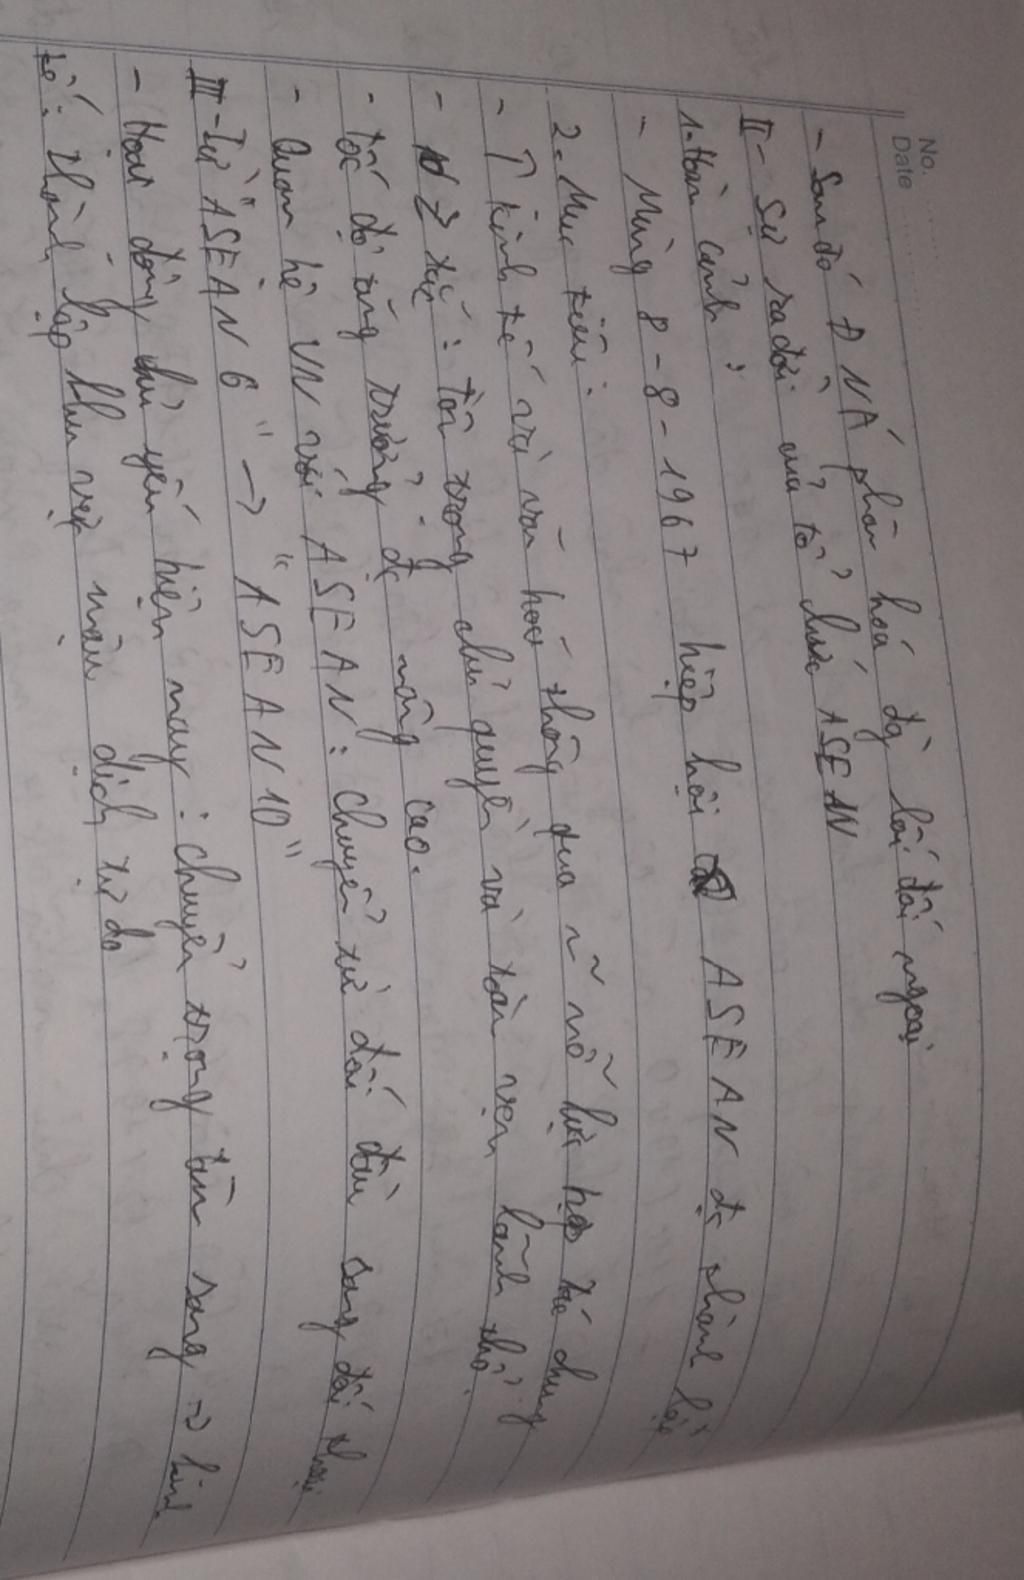 No.
Date
- Sau đó ĐNÁ phân hoá đg lối đối ngoại
II - Sự ra đời của tổ chức ASEAN
1. Hoàn cảnh:
- Mùng 8-8-1967 hiệp hội ASEAN đc thành lập
2. Mục tiêu:
- ↑ kinh tế và văn hoá thông qua nỗ lực hợp tác chung
- tắc: tôn trọng chủ quyền và toàn vẹn lãnh thổ
- Tốc độ tăng trưởng đc nâng cao.
- Quan hệ VN với ASEAN: chuyển từ đối đầu sang đối thoại
III - Từ "ASEAN 6" → "ASEAN 10"
- Hoạt động chủ yếu hiện nay: chuyển trọng tâm sang → kinh
tế: thành lập khu vực mậu dịch tự do